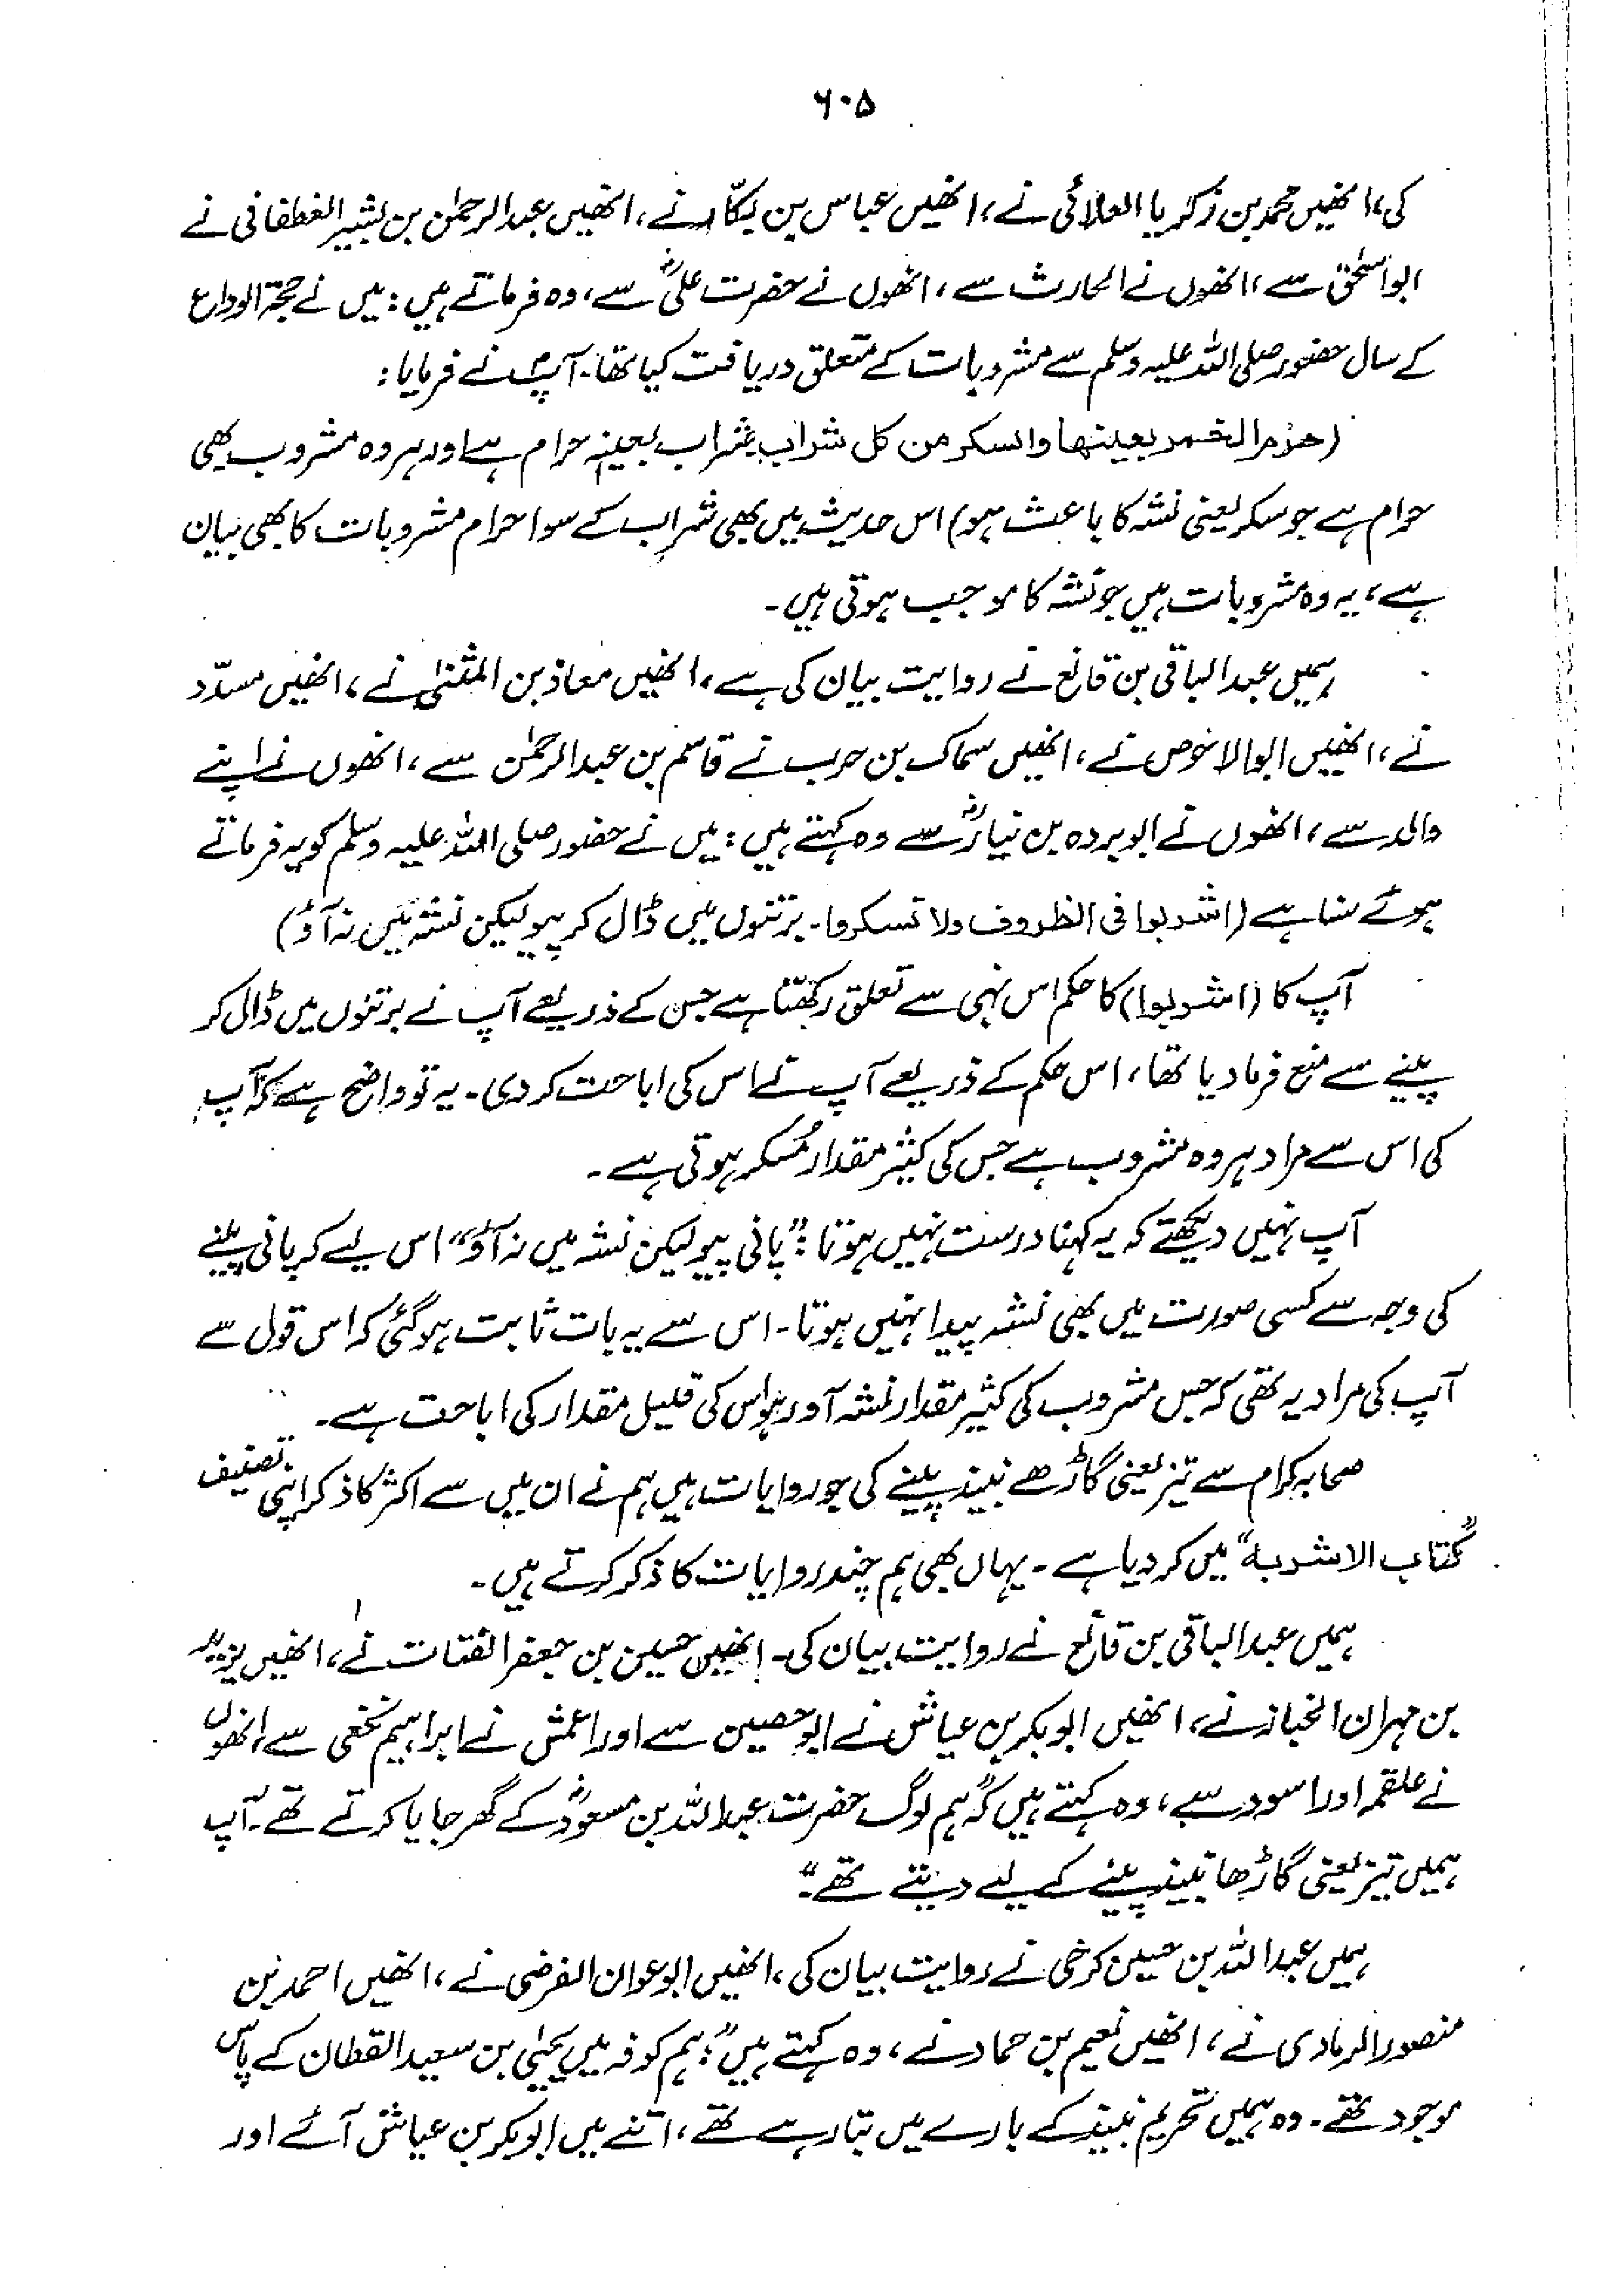 ۶۰۵
کی، انھیں محمد بن زکریا العلائی نے، انھیں عباس بن بکّار نے، انھیں عبدالرحمٰن بن بشیر الغطفانی نے
ابواسحٰق سے، انھوں نے الحارث سے، انھوں نے حضرت علیؓ سے، وہ فرماتے ہیں: میں نے حجۃ الوداع
کے سال حضور صلی اللہ علیہ وسلم سے مشروبات کے متعلق دریافت کیا تھا۔ آپؐ نے فرمایا:
(حرم الخمر بعینھا والسکر من کل شراب شراب بعینہٖ حرام ہے اور ہر وہ مشروب بھی
حرام ہے جو سکر یعنی نشہ کا باعث ہو) اس حدیث میں بھی شراب کے سوا حرام مشروبات کا بھی بیان
ہے، یہ وہ مشروبات ہیں جو نشہ کا موجب ہوتی ہیں۔
ہمیں عبدالباقی بن قانع نے روایت بیان کی ہے، انھیں معاذ بن المثنیٰ نے، انھیں مسدّد
نے، انھیں ابوالاحوص نے، انھیں سماک بن حرب نے قاسم بن عبدالرحمٰن سے، انھوں نے اپنے
والد سے، انھوں نے ابوبردہ بن نیارؓ سے وہ کہتے ہیں: میں نے حضور صلی اللہ علیہ وسلم کو یہ فرماتے
ہوئے سنا ہے (اشربوا فی الظروف ولا تسکروا۔ برتنوں میں ڈال کر پیو لیکن نشہ میں نہ آؤ)
آپ کا (اشربوا) کا حکم اس نہی سے تعلق رکھتا ہے جس کے ذریعے آپ نے برتنوں میں ڈال کر
پینے سے منع فرما دیا تھا، اس حکم کے ذریعے آپ نے اس کی اباحت کر دی۔ یہ تو واضح ہے کہ آپ
کی اس سے مراد ہر وہ مشروب ہے جس کی کثیر مقدار مُسکر ہوتی ہے۔
آپ نہیں دیکھتے کہ یہ کہنا درست نہیں ہوتا: "پانی پیو لیکن نشہ میں نہ آؤ" اس لیے کہ پانی پینے
کی وجہ سے کسی صورت میں بھی نشہ پیدا نہیں ہوتا۔ اس سے یہ بات ثابت ہو گئی کہ اس قول سے
آپ کی مراد یہ تھی کہ جس مشروب کی کثیر مقدار نشہ آور ہو اس کی قلیل مقدار کی اباحت ہے۔
صحابہ کرام سے تیز یعنی گاڑھے نبیذ پینے کی جو روایات ہیں ہم نے ان میں سے اکثر کا ذکر اپنی تصنیف
"کتاب الاشربہ" میں کر دیا ہے۔ یہاں بھی ہم چند روایات کا ذکر کرتے ہیں۔
ہمیں عبدالباقی بن قانع نے روایت بیان کی۔ انھیں حسین بن جعفر القتات نے، انھیں یزید
بن مہران الخباز نے، انھیں ابوبکر بن عیاش نے ابوحصین سے اور اعمش نے ابراہیم نخعی سے، انھوں
نے علقمہ اور اسود سے، وہ کہتے ہیں کہ "ہم لوگ حضرت عبداللہ بن مسعودؓ کے گھر جایا کرتے تھے۔ آپ
ہمیں تیز یعنی گاڑھا نبیذ پینے کے لیے دیتے تھے۔"
ہمیں عبداللہ بن حسین کرخی نے روایت بیان کی، انھیں ابوعوان الفرضی نے، انھیں احمد بن
منصور الرمادی نے، انھیں نعیم بن حماد نے، وہ کہتے ہیں: "ہم کوفہ میں یحییٰ بن سعید القطان کے پاس
موجود تھے۔ وہ ہمیں تحریم نبیذ کے بارے میں بتا رہے تھے، اتنے میں ابوبکر بن عیاش آئے اور